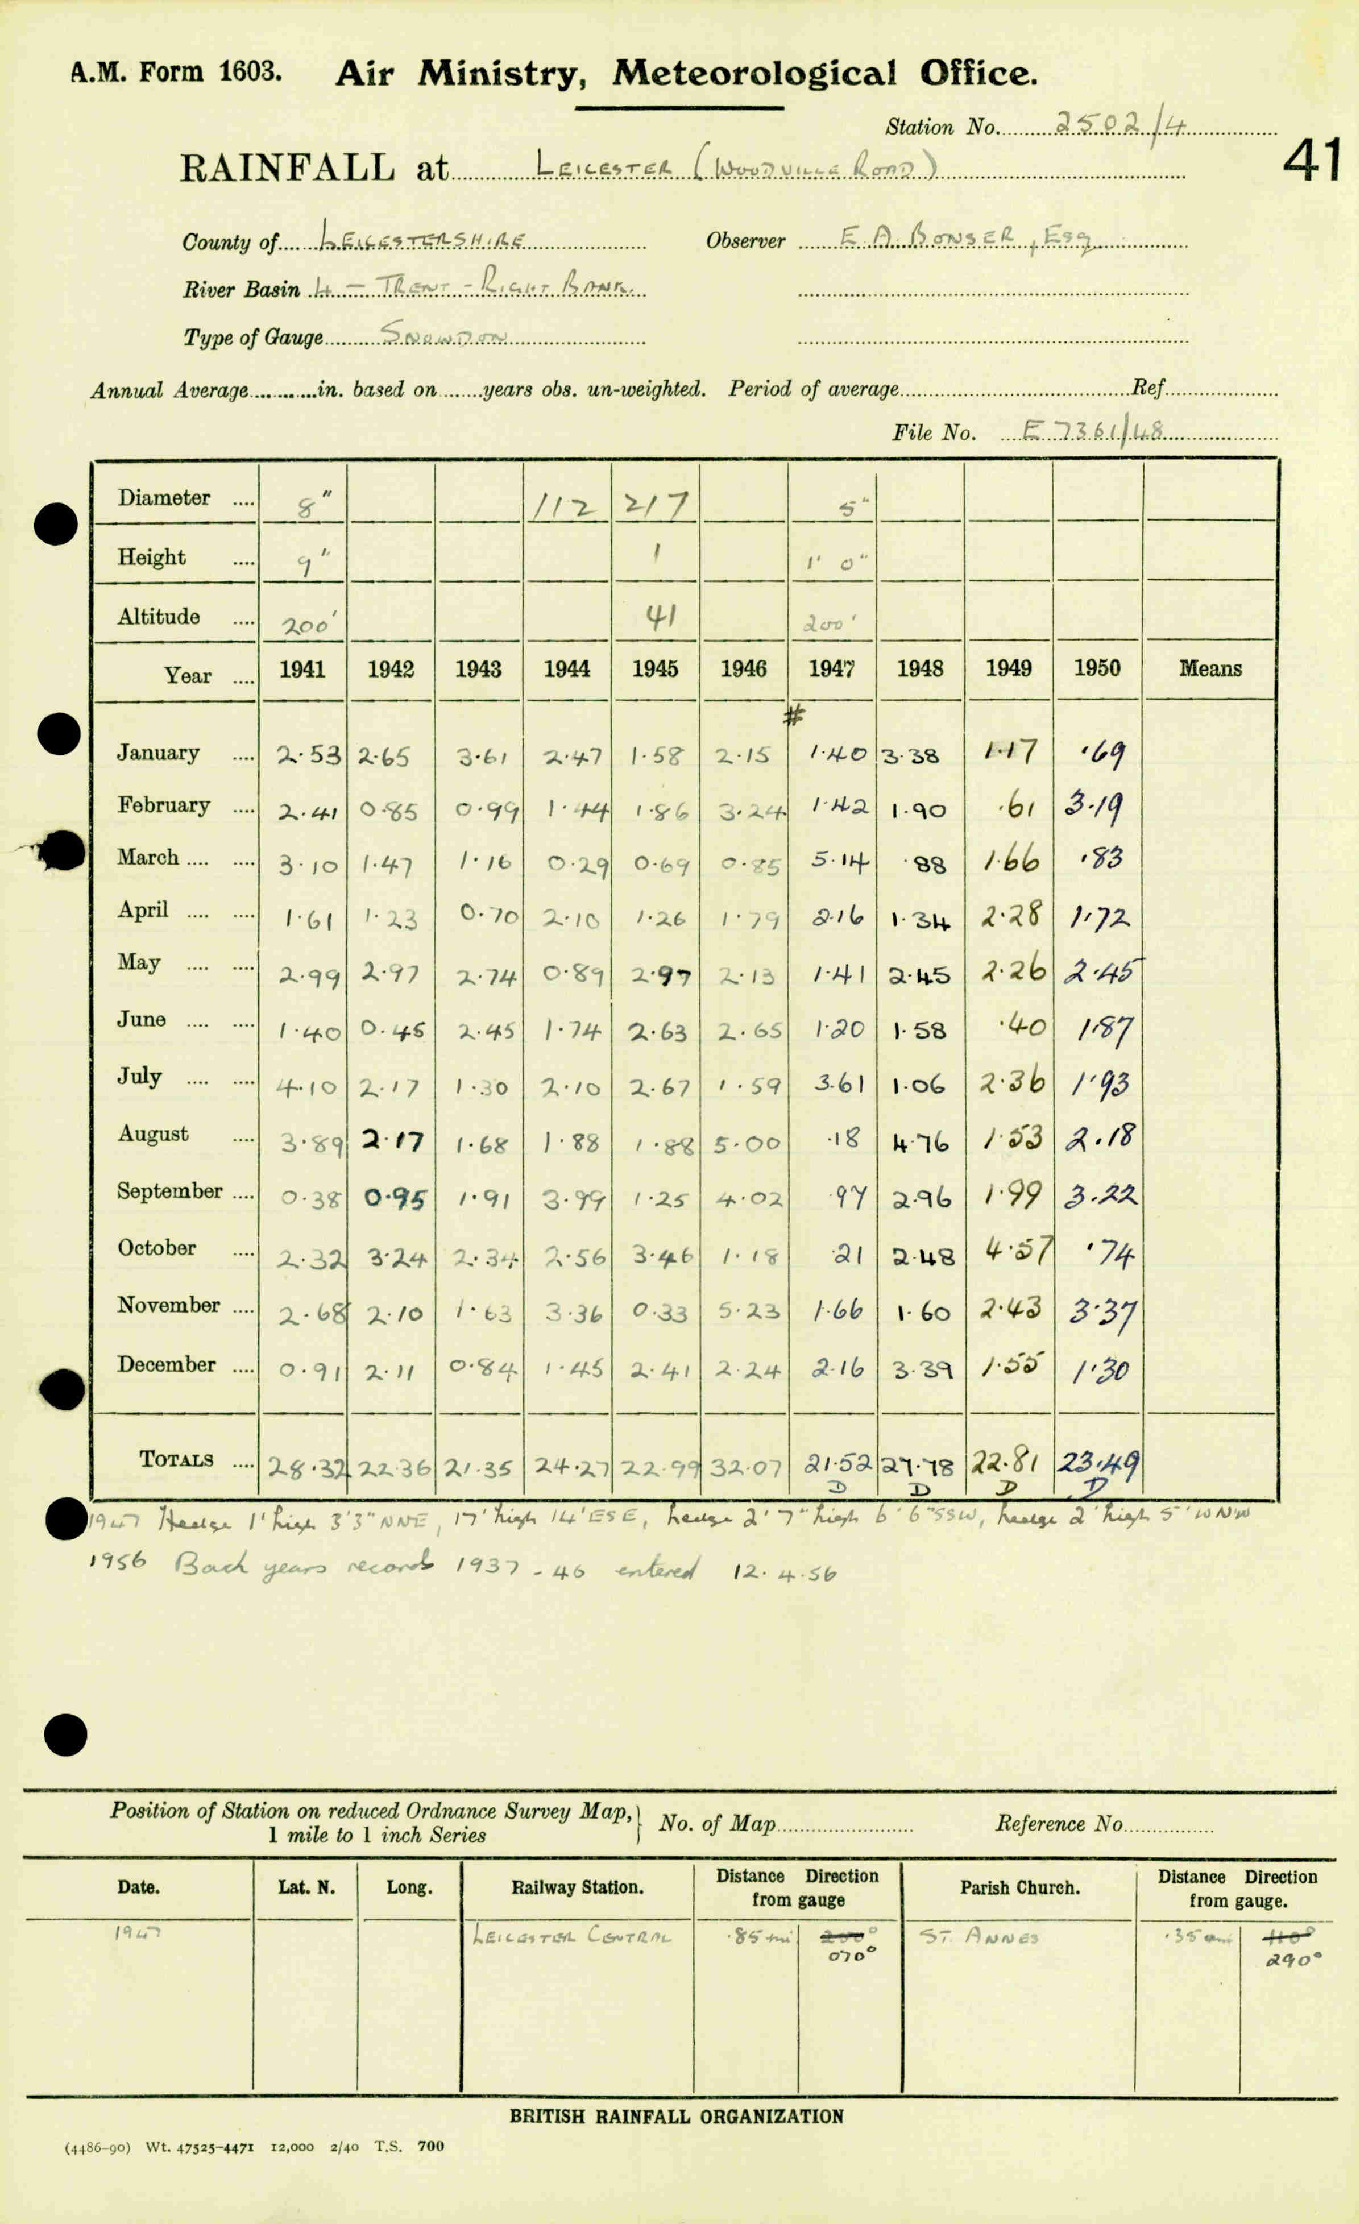 A.M. Form 1603. Air Ministry, Meteorological Office.
Station No. 2502/4
41
RAINFALL at LEICESTER (WOODVILLE ROAD)
County of LEICESTERSHIRE Observer E. A. BONSER, ESQ
River Basin 4 - TRENT - RIGHT BANK.
Type of Gauge SNOWDON
Annual Average in. based on years obs. un-weighted. Period of average Ref.
File No. E 7361/48
Diameter 8" 112 217 5"
Height 9" 1 1' 0"
Altitude 200' 41 200'
Year 1941 1942 1943 1944 1945 1946 1947 1948 1949 1950 Means
#
January 2.53 2.65 3.61 2.47 1.58 2.15 1.40 3.38 1.17 .69
February 2.41 0.85 0.99 1.44 1.86 3.24 1.42 1.90 .61 3.19
March 3.10 1.47 1.16 0.29 0.69 0.85 5.14 .88 1.66 .83
April 1.61 1.23 0.70 2.10 1.26 1.79 2.16 1.34 2.28 1.72
May 2.99 2.97 2.74 0.89 2.97 2.13 1.41 2.45 2.26 2.45
June 1.40 0.45 2.45 1.74 2.63 2.65 1.20 1.58 .40 1.87
July 4.10 2.17 1.30 2.10 2.67 1.59 3.61 1.06 2.36 1.93
August 3.89 2.17 1.68 1.88 1.88 5.00 .18 4.76 1.53 2.18
September 0.38 0.95 1.91 3.99 1.25 4.02 .97 2.96 1.99 3.22
October 2.32 3.24 2.34 2.56 3.46 1.18 .21 2.48 4.57 .74
November 2.68 2.10 1.63 3.36 0.33 5.23 1.66 1.60 2.43 3.37
December 0.91 2.11 0.84 1.45 2.41 2.24 2.16 3.39 1.55 1.30
TOTALS 28.32 22.36 21.35 24.27 22.99 32.07 21.52 27.78 22.81 23.49
D D D D
1947 Hedge 1' high 3'3" NNE, 17' high 14' ESE, hedge 2' 7" high 6' 6" SSW, hedge 2' high 5' WNW
1956 Back years records 1937 - 46 entered 12.4.56
Position of Station on reduced Ordnance Survey Map, No. of Map Reference No.
1 mile to 1 inch Series
Date. Lat. N. Long. Railway Station. Distance Direction from gauge Parish Church. Distance Direction from gauge.
1947 LEICESTER CENTRAL .85 mi 200° ST. ANNES .35 mi 110°
070° 290°
BRITISH RAINFALL ORGANIZATION
(4486-90) Wt. 47525-4471 12,000 2/40 T.S. 700